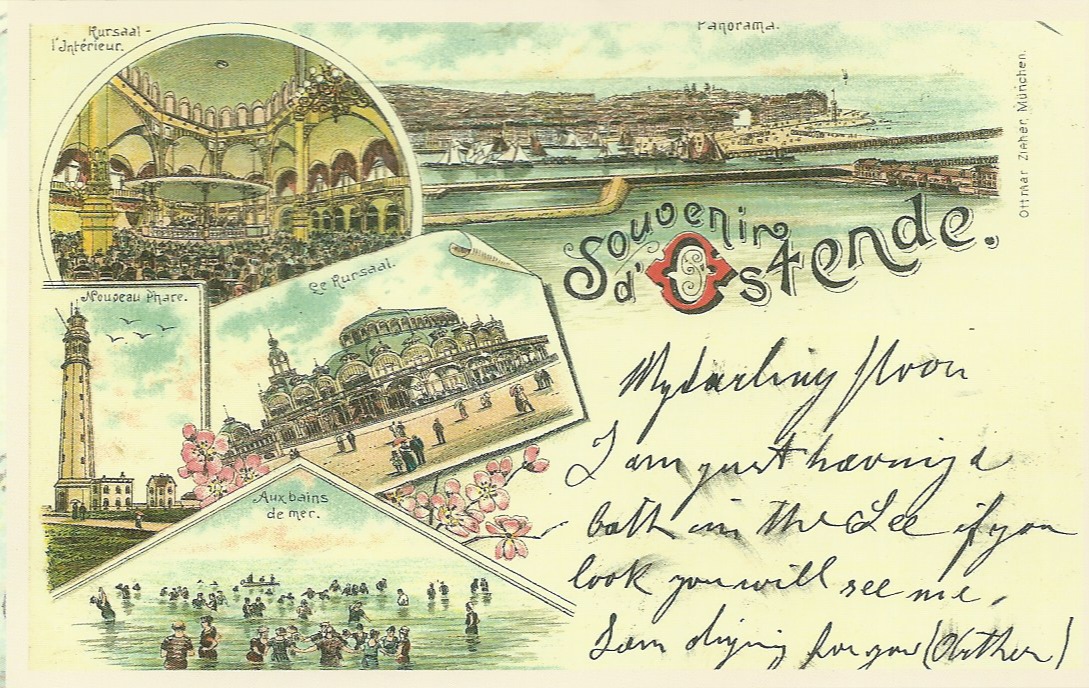 Kursaal -
l'Intérieur.
Panorama.
Ottmar Zieher, München.
Souvenir
d'Ostende.
Nouveau Phare.
Le Kursaal.
Aux bains
de mer.
My darling
I am just having a
bath in the See if you
look you will see me.
I am diying for you